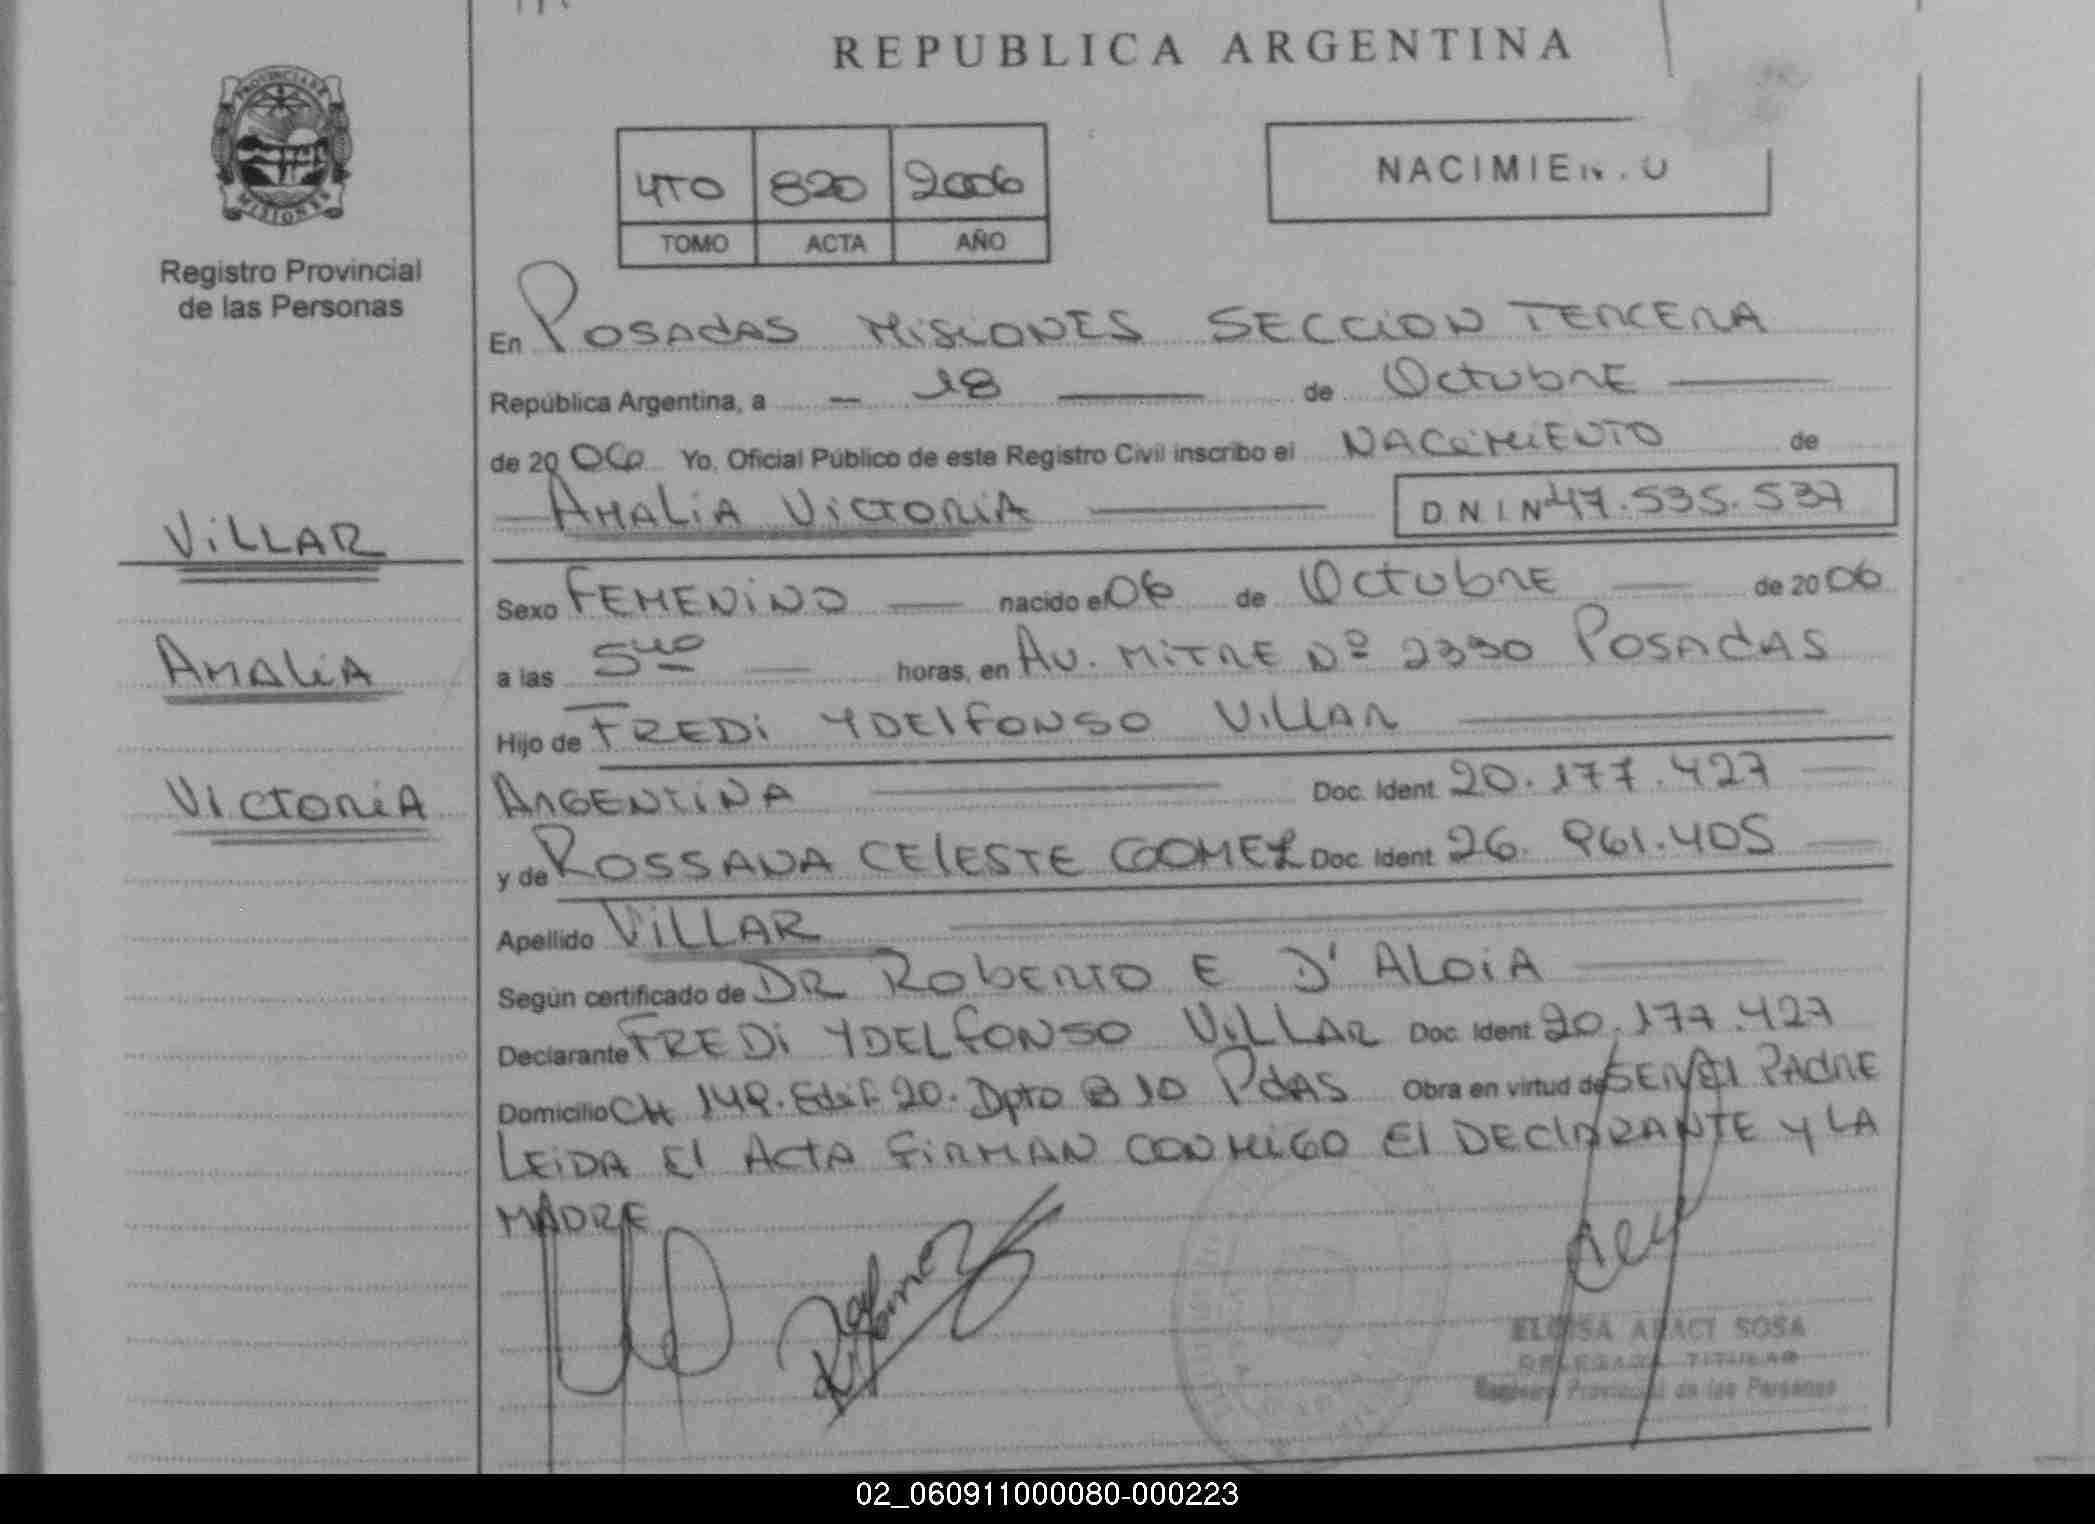 REPUBLICA ARGENTINA
PROVINCIA DE
MISIONES
Registro Provincial
de las Personas
4TO 820 2006
TOMO ACTA AÑO
NACIMIEN.O
En POSADAS MISIONES SECCION TERCERA
República Argentina, a — 18 — de Octubre —
de 20 006 Yo, Oficial Público de este Registro Civil inscribo el NACIMIENTO de
— AMALIA VICTORIA — D N I Nº 47.535.537
VILLAR
AMALIA
VICTORIA
Sexo FEMENINO — nacido el 06 de Octubre — de 20 06
a las 5 40 — horas, en AV. MITRE Nº 2330 POSADAS
Hijo de FREDI YDELFONSO VILLAR —
ARGENTINA — Doc. Ident. 20.177.427 —
y de ROSSANA CELESTE GOMEZ Doc. Ident. 26.961.405 —
Apellido VILLAR —
Según certificado de DR ROBERTO E D'ALOIA —
Declarante FREDI YDELFONSO VILLAR Doc. Ident. 20.177.427
Domicilio CH 149. Edif 20. Dpto B 10 PdAS Obra en virtud de SER El PADRE
LEIDA El ACTA FIRMAN CONMIGO El DECLARANTE Y LA
MADRE
ELOISA ARACI SOSA
DELEGADA TITULAR
Registro Provincial de las Personas
02_060911000080-000223